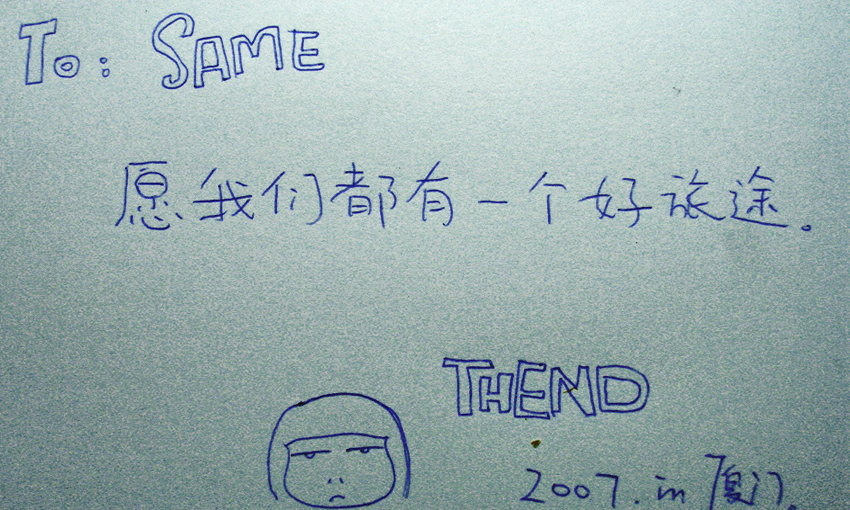 To: SAME
愿我们都有一个好旅途。
THEND
2007. in 厦门.